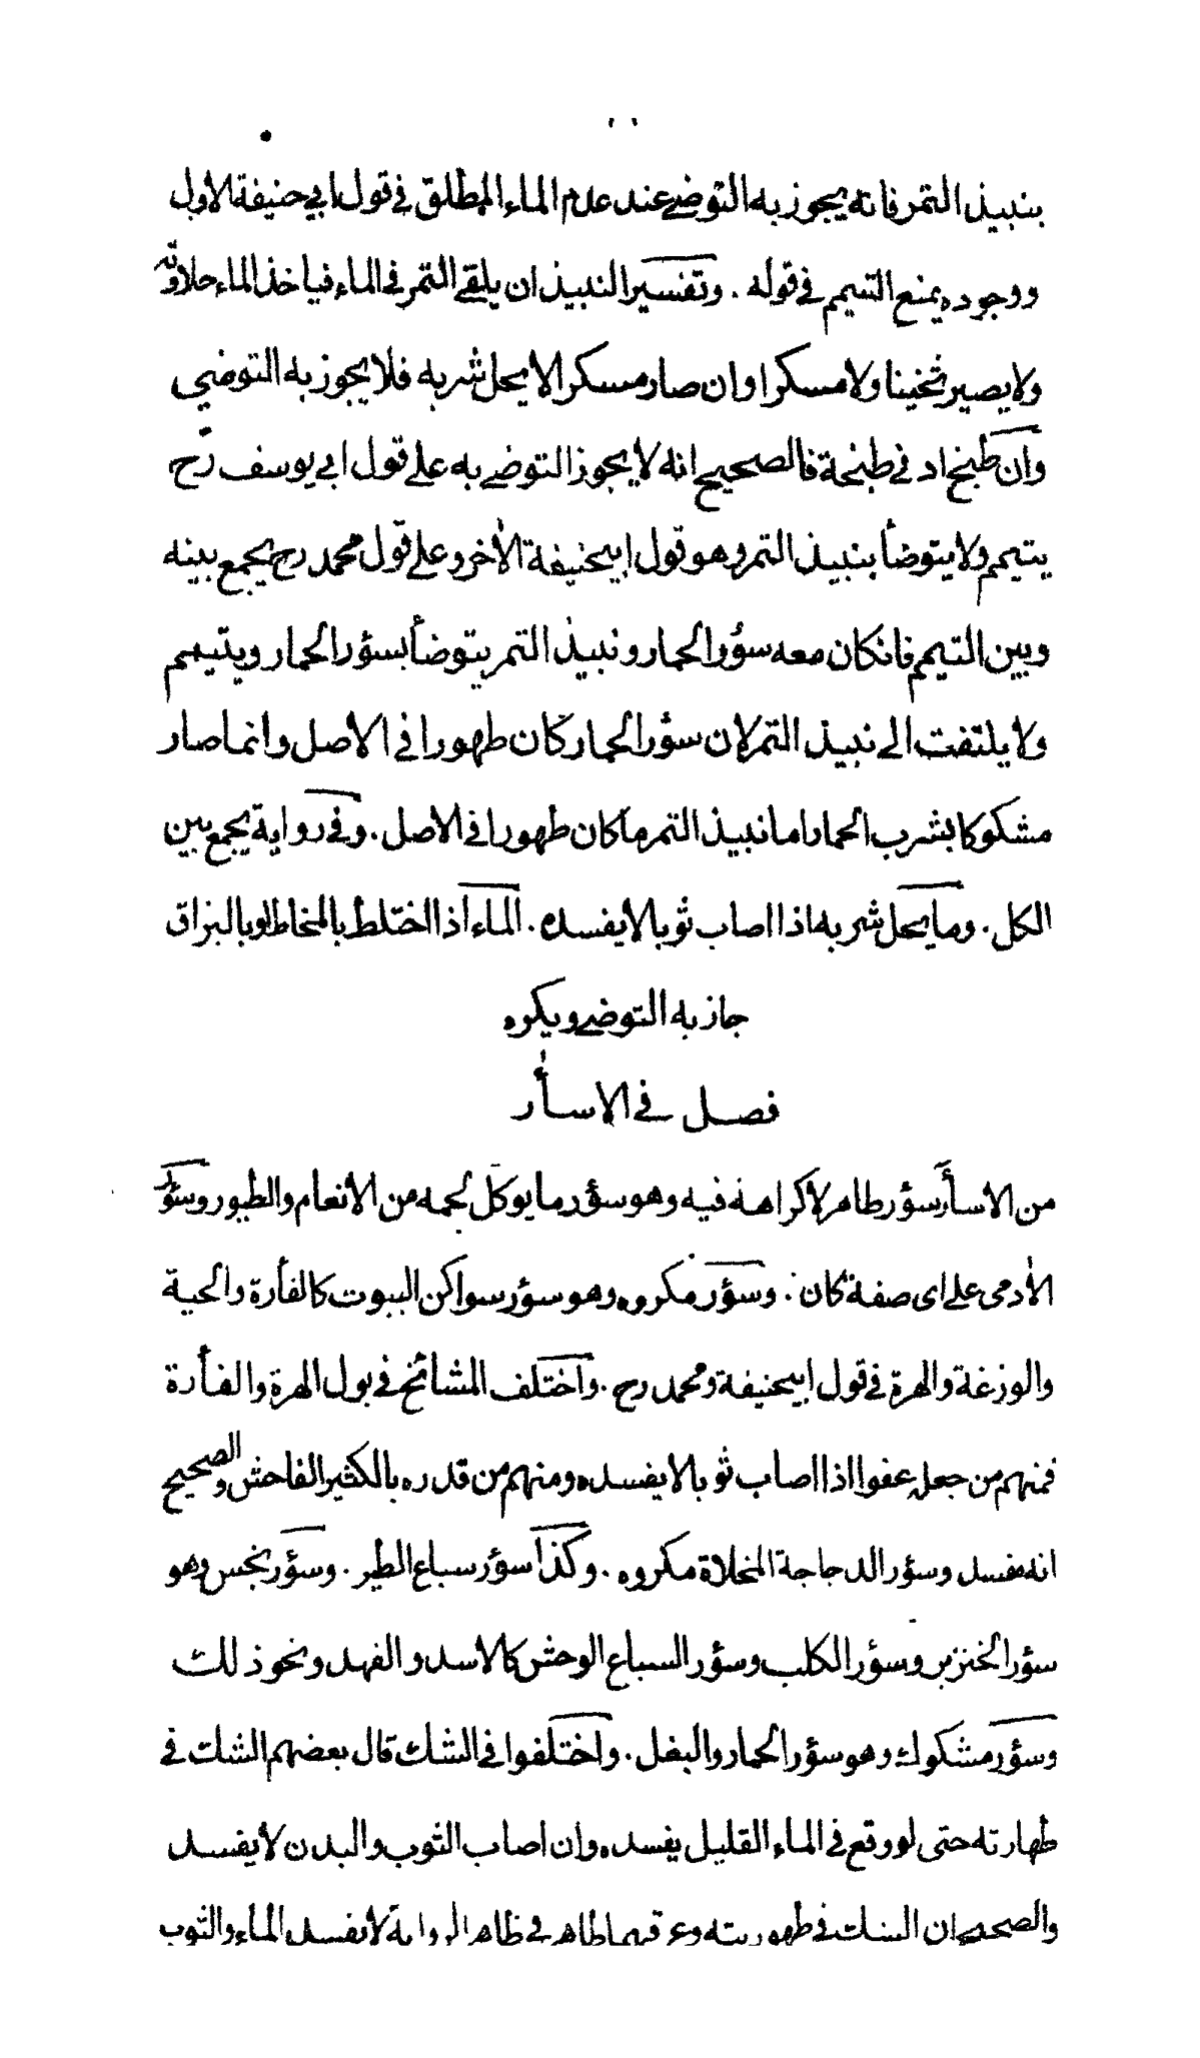 بنبيذ التمر فانه يجوز به التوضے عند عدم الماء المطلق فے قول ابي حنيفة الاول
ووجوده يمنع التيمم فے قوله . وتفسير النبيذ ان يلقے التمر فے الماء فياخذ الماء حلاوته
ولا يصير ثخينا ولا مسكرا وان صار مسكرا لا يحل شربه فلا يجوز به التوضي
وان طبخ ادنے طبخة فالصحيح انه لا يجوز التوضے به علے قول ابي يوسف رح
يتيمم ولا يتوضأ بنبيذ التمر وهو قول ابيحنيفة الأخر وعلے قول محمد رح يجمع بينه
وبين التيمم فانكان معه سؤر الحمار ونبيذ التمر يتوضأ بسؤر الحمار ويتيمم
ولا يلتفت الے نبيذ التمر لان سؤر الحمار كان طهورا فے الاصل وانما صار
مشكوكا بشرب الحمار اما نبيذ التمر ما كان طهورا فے الاصل . وفے رواية يجمع بين
الكل . وما يحل شربه اذا اصاب ثوبا لا يفسده . الماء اذا اختلط بالمخاط او بالبزاق
جاز به التوضے ويكره
فصل فے الاسأر
من الاسأر سؤر طاهر لا كراهة فيه وهو سؤر ما يوكل لحمه من الانعام والطيور وسؤر
الأدمى علے اى صفة كان . وسؤر مكروه وهو سؤر سواكن البيوت كالفأرة والحية
والوزغة والهرة فے قول ابيحنيفة ومحمد رح . واختلف المشائخ فے بول الهرة والفأرة
فمنهم من جعله عفوا اذا اصاب ثوبا لا يفسده ومنهم من قدره بالكثير الفاحش والصحيح
انه مفسد وسؤر الدجاجة المخلاة مكروه . وكذا سؤر سباع الطير . وسؤر نجس وهو
سؤر الخنزير وسؤر الكلب وسؤر السباع الوحش كالاسد والفهد ونحو ذلك
وسؤر مشكوك وهو سؤر الحمار والبغل . واختلفوا فے الشك قال بعضهم الشك فے
طهارته حتى لو وقع فے الماء القليل يفسده وان اصاب الثوب والبدن لا يفسد
والصحيح ان الشك فے طهوريته وعرقهما طاهر فے ظاهر الرواية لا يفسد الماء والثوب